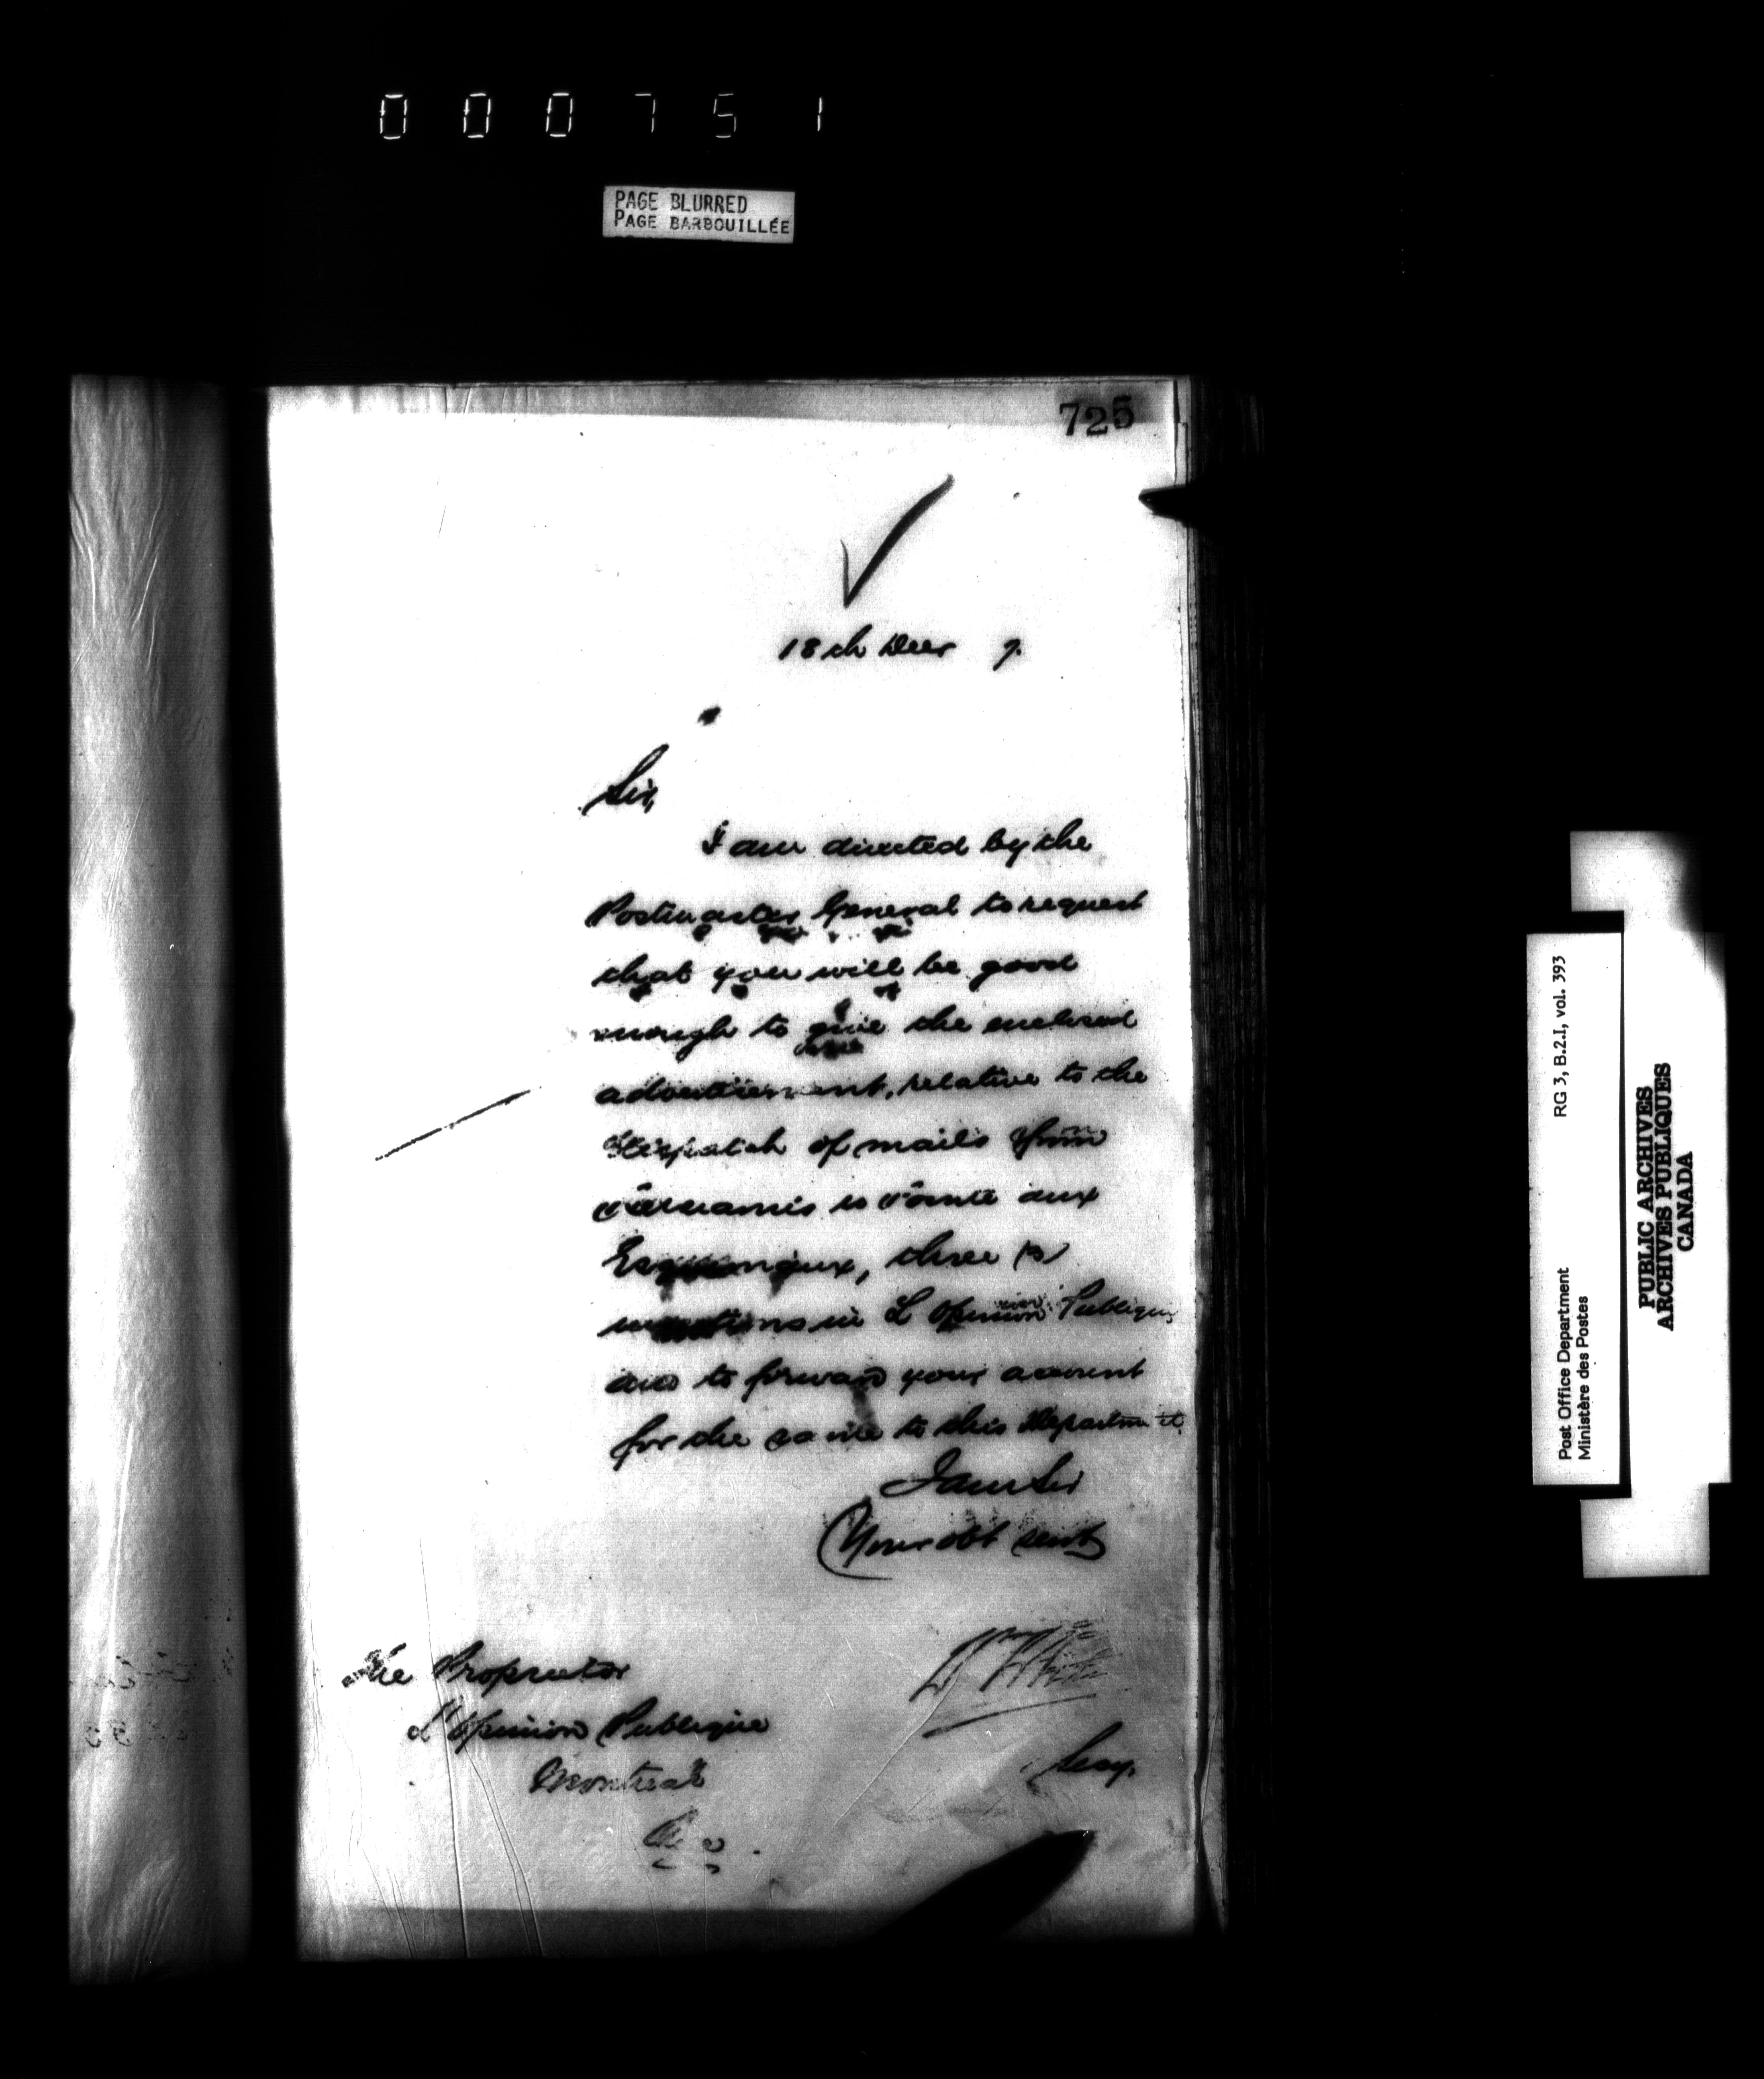 000751
PAGE BLURRED
PAGE BARBOUILLÉE
725
18th Decr 7.
Sir,
I am directed by the
Postmaster General to request
that you will be good
enough to give the enclosed
advertisement, relative to the
despatch of mails from
to Pointe aux
Esquimaux, three (3)
insertions in L'Opinion Publique
and to forward your account
for the same to this Department.
I am Sir
Your obt servt
W White
Secy.
The Proprietor
L'Opinion Publique
Montreal
RG 3, B.2.I, vol. 393
Post Office Department
Ministère des Postes
PUBLIC ARCHIVES
ARCHIVES PUBLIQUES
CANADA